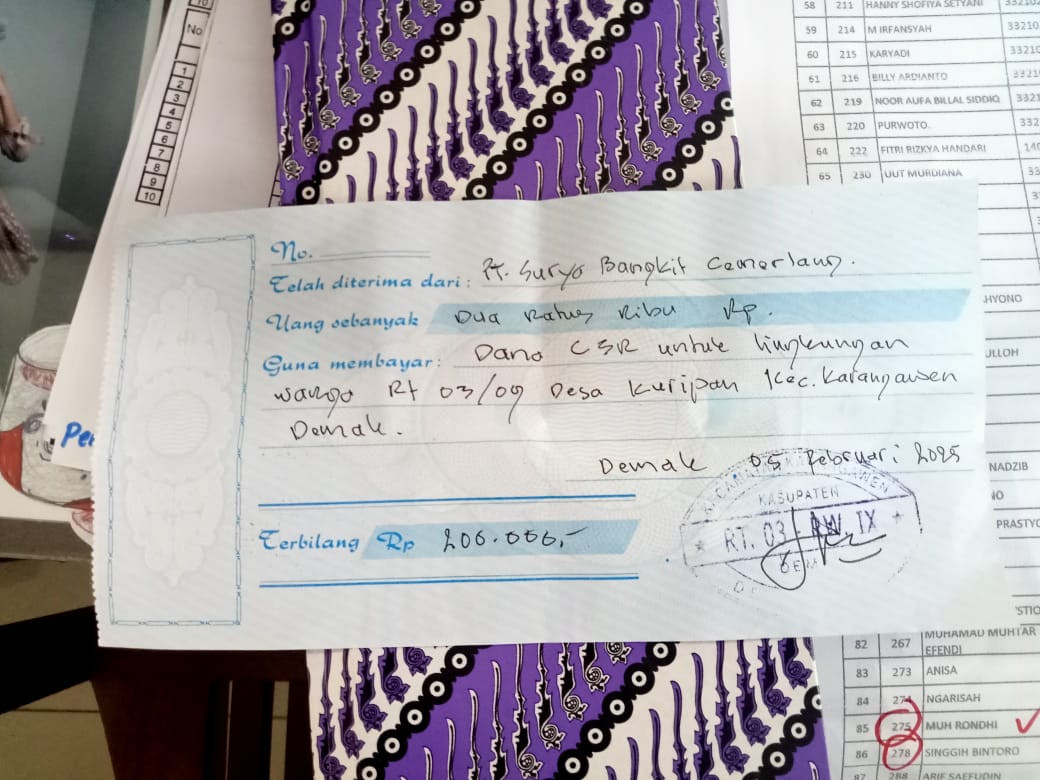 No
1
2
3
4
5
6
7
8
9
10
58 211 HANNY SHOFIYA SETYANI
59 214 M IRFANSYAH 33210
60 215 KARYADI 33210
61 216 BILLY ARDIANTO 3321
62 219 NOOR AUFA BILLAL SIDDIQ 3321
63 220 PURWOTO. 332
64 222 FITRI RIZKYA HANDARI
65 230 UUT MURDIANA 33
No.
Telah diterima dari: Pt. Suryo Bangkit Cemerlang.
Uang sebanyak Dua Ratus Ribu Rp.
Guna membayar: Dana CSR untuk lingkungan
warga Rt 03/09 Desa Kuripan Kec. Karangawen
Demak.
Demak 05 Februari 2025
KABUPATEN
RT. 03 RW. IX
Terbilang Rp 200.000,-
HYONO
ULLOH
NADZIB
PRASTYO
82 267 MUHAMAD MUHTAR EFENDI
83 273 ANISA
84 274 NGARISAH
85 275 MUH RONDHI
86 278 SINGGIH BINTORO
87 288 ARIF SAEFUDIN